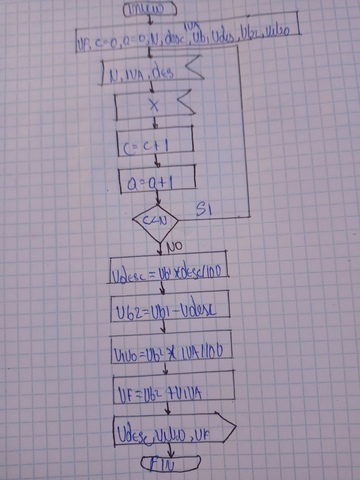 INICIO
VF, C=0, a=0, N, desc, IVA, Vb1, Vdes, Vb2, VIVA0
N, IVA, des
X
C = C+1
a = a+1
C<N
SI
NO
Vdesc = Vb1 * desc/100
Vb2 = Vb1 - Vdesc
= Vb2 * IVA/100
VF = Vb2 + VIVA
Vdesc, , VF
FIN